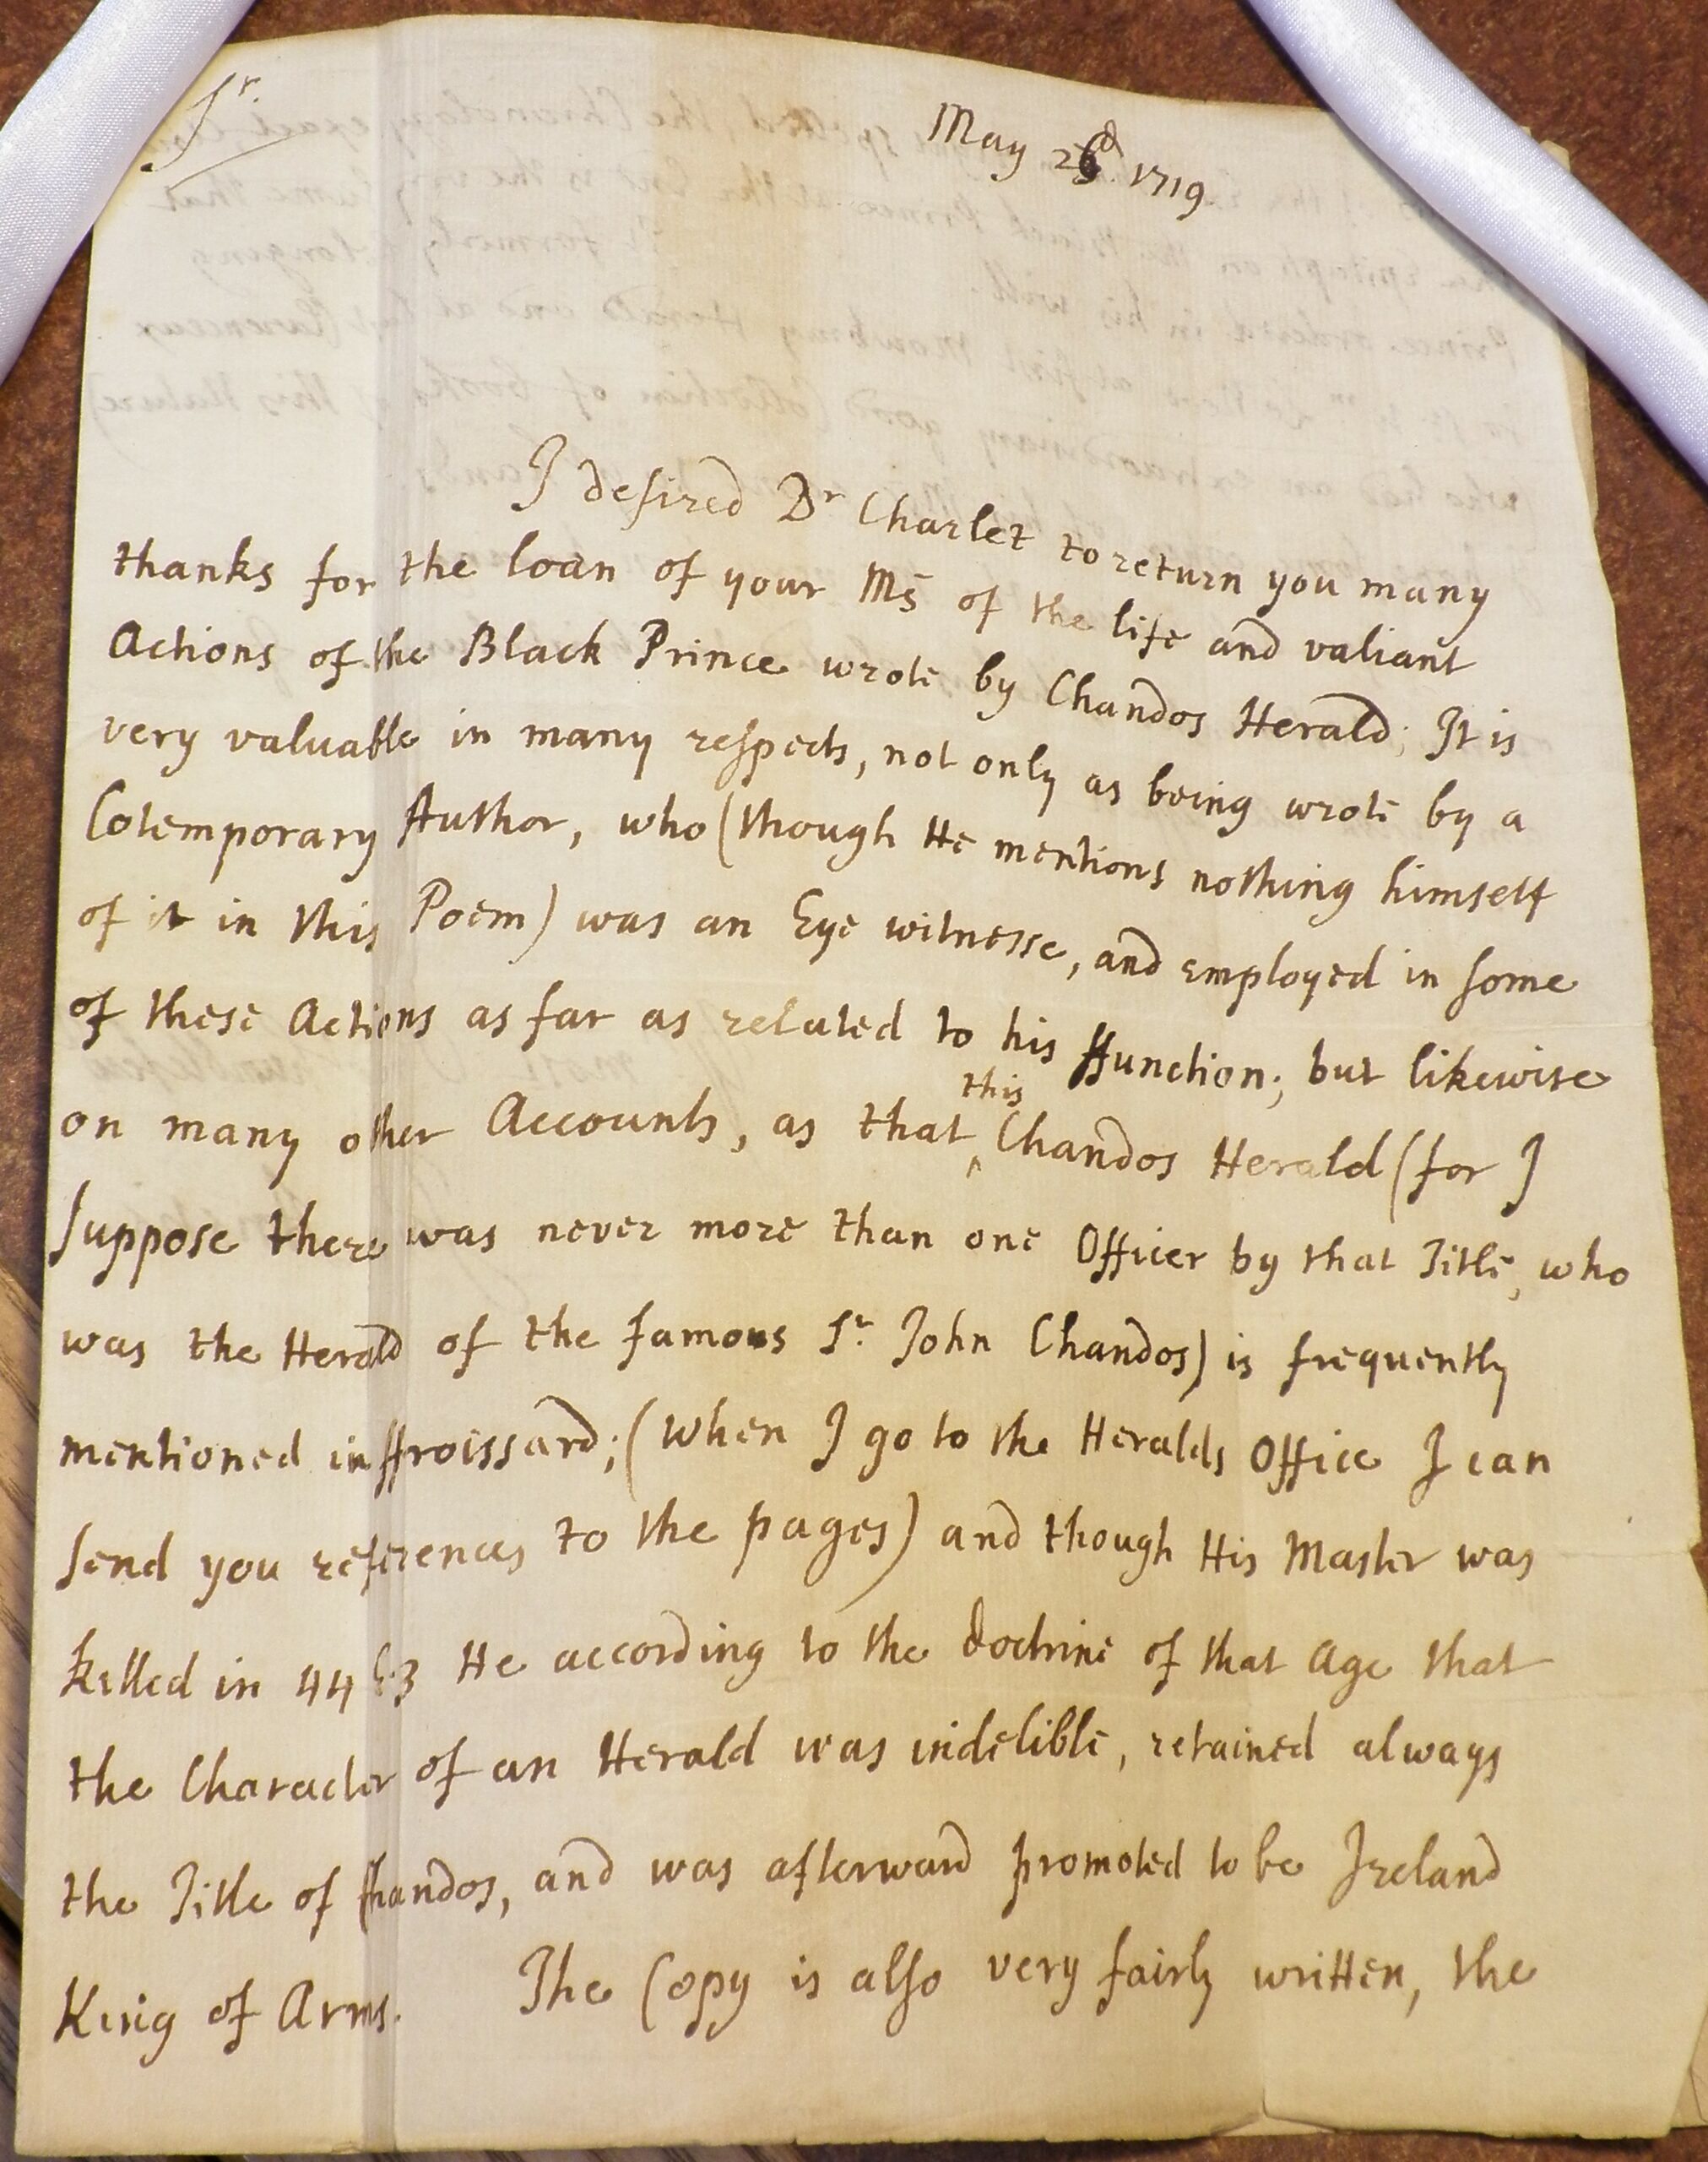 Sr.
May 23d. 1719
I desired Dr Charlet to return you many
thanks for the loan of your Ms of the life and valiant
Actions of the Black Prince wrote by Chandos Herald; It is
very valuable in many respects, not only as being wrote by a
Cotemporary Author, who (though He mentions nothing himself
of it in this Poem) was an Eye witnesse, and employed in some
of these Actions as far as related to his ffunction; but likewise
on many other Accounts, as that ‸ this Chandos Herald (for I
suppose there was never more than one Officer by that Title, who
was the Herald of the famous Sr. John Chandos) is frequently
mentioned in ffroissard; (when I go to the Heralds Office I can
send you references to the pages) and though His Master was
killed in 44 E.3 He according to the doctrine of that Age that
the Character of an Herald was indelible, retained always
the Title of Chandos, and was afterward promoted to be Ireland
King of Arms. The Copy is also very fairly written, the